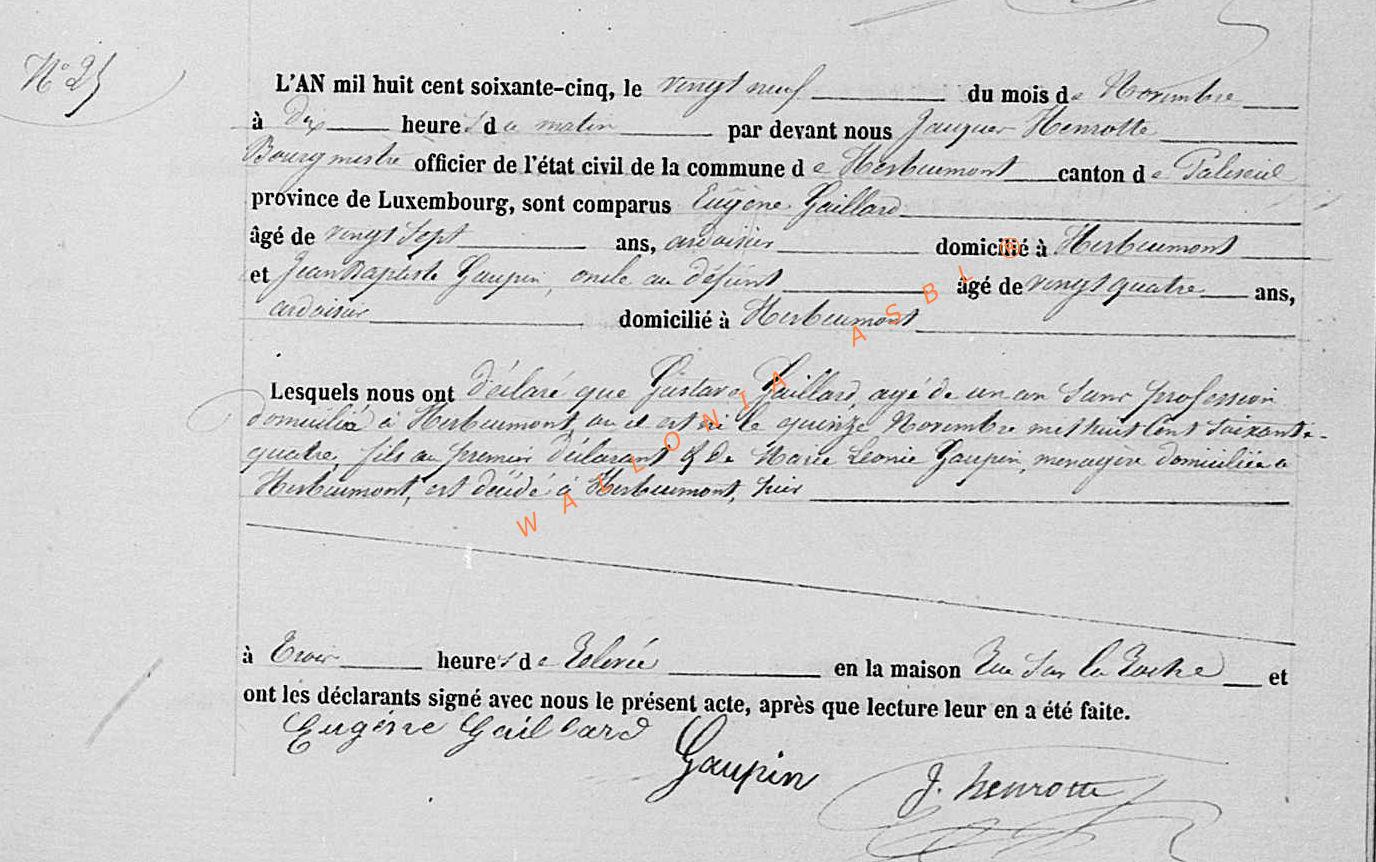 N° 25
L'AN mil huit cent soixante-cinq, le vingt neuf du mois de Novembre
à Dix heures du matin par devant nous Jacques Henrotte
Bourgmestre officier de l'état civil de la commune de Herbeumont canton de Paliseul
province de Luxembourg, sont comparus Eugène Gaillard
âgé de vingt sept ans, ardoisier domicilié à Herbeumont
et Jean Baptiste Gaupin, oncle au défunt âgé de vingt quatre ans,
ardoisier domicilié à Herbeumont
Lesquels nous ont déclaré que Gustave Gaillard, agé de un an sans profession
domicilié à Herbeumont, où il est né le quinze Novembre mil huit cent soixante-
quatre, fils au premier déclarant & de Marie Léonie Gaupin, menagère domiciliée à
Herbeumont, est décédé à Herbeumont, hier
à Trois heures de Relevée en la maison Rue Sur la Roche et
ont les déclarants signé avec nous le présent acte, après que lecture leur en a été faite.
Eugène Gaillard
Gaupin
J. henrotte
WALLONIA ASBL ©